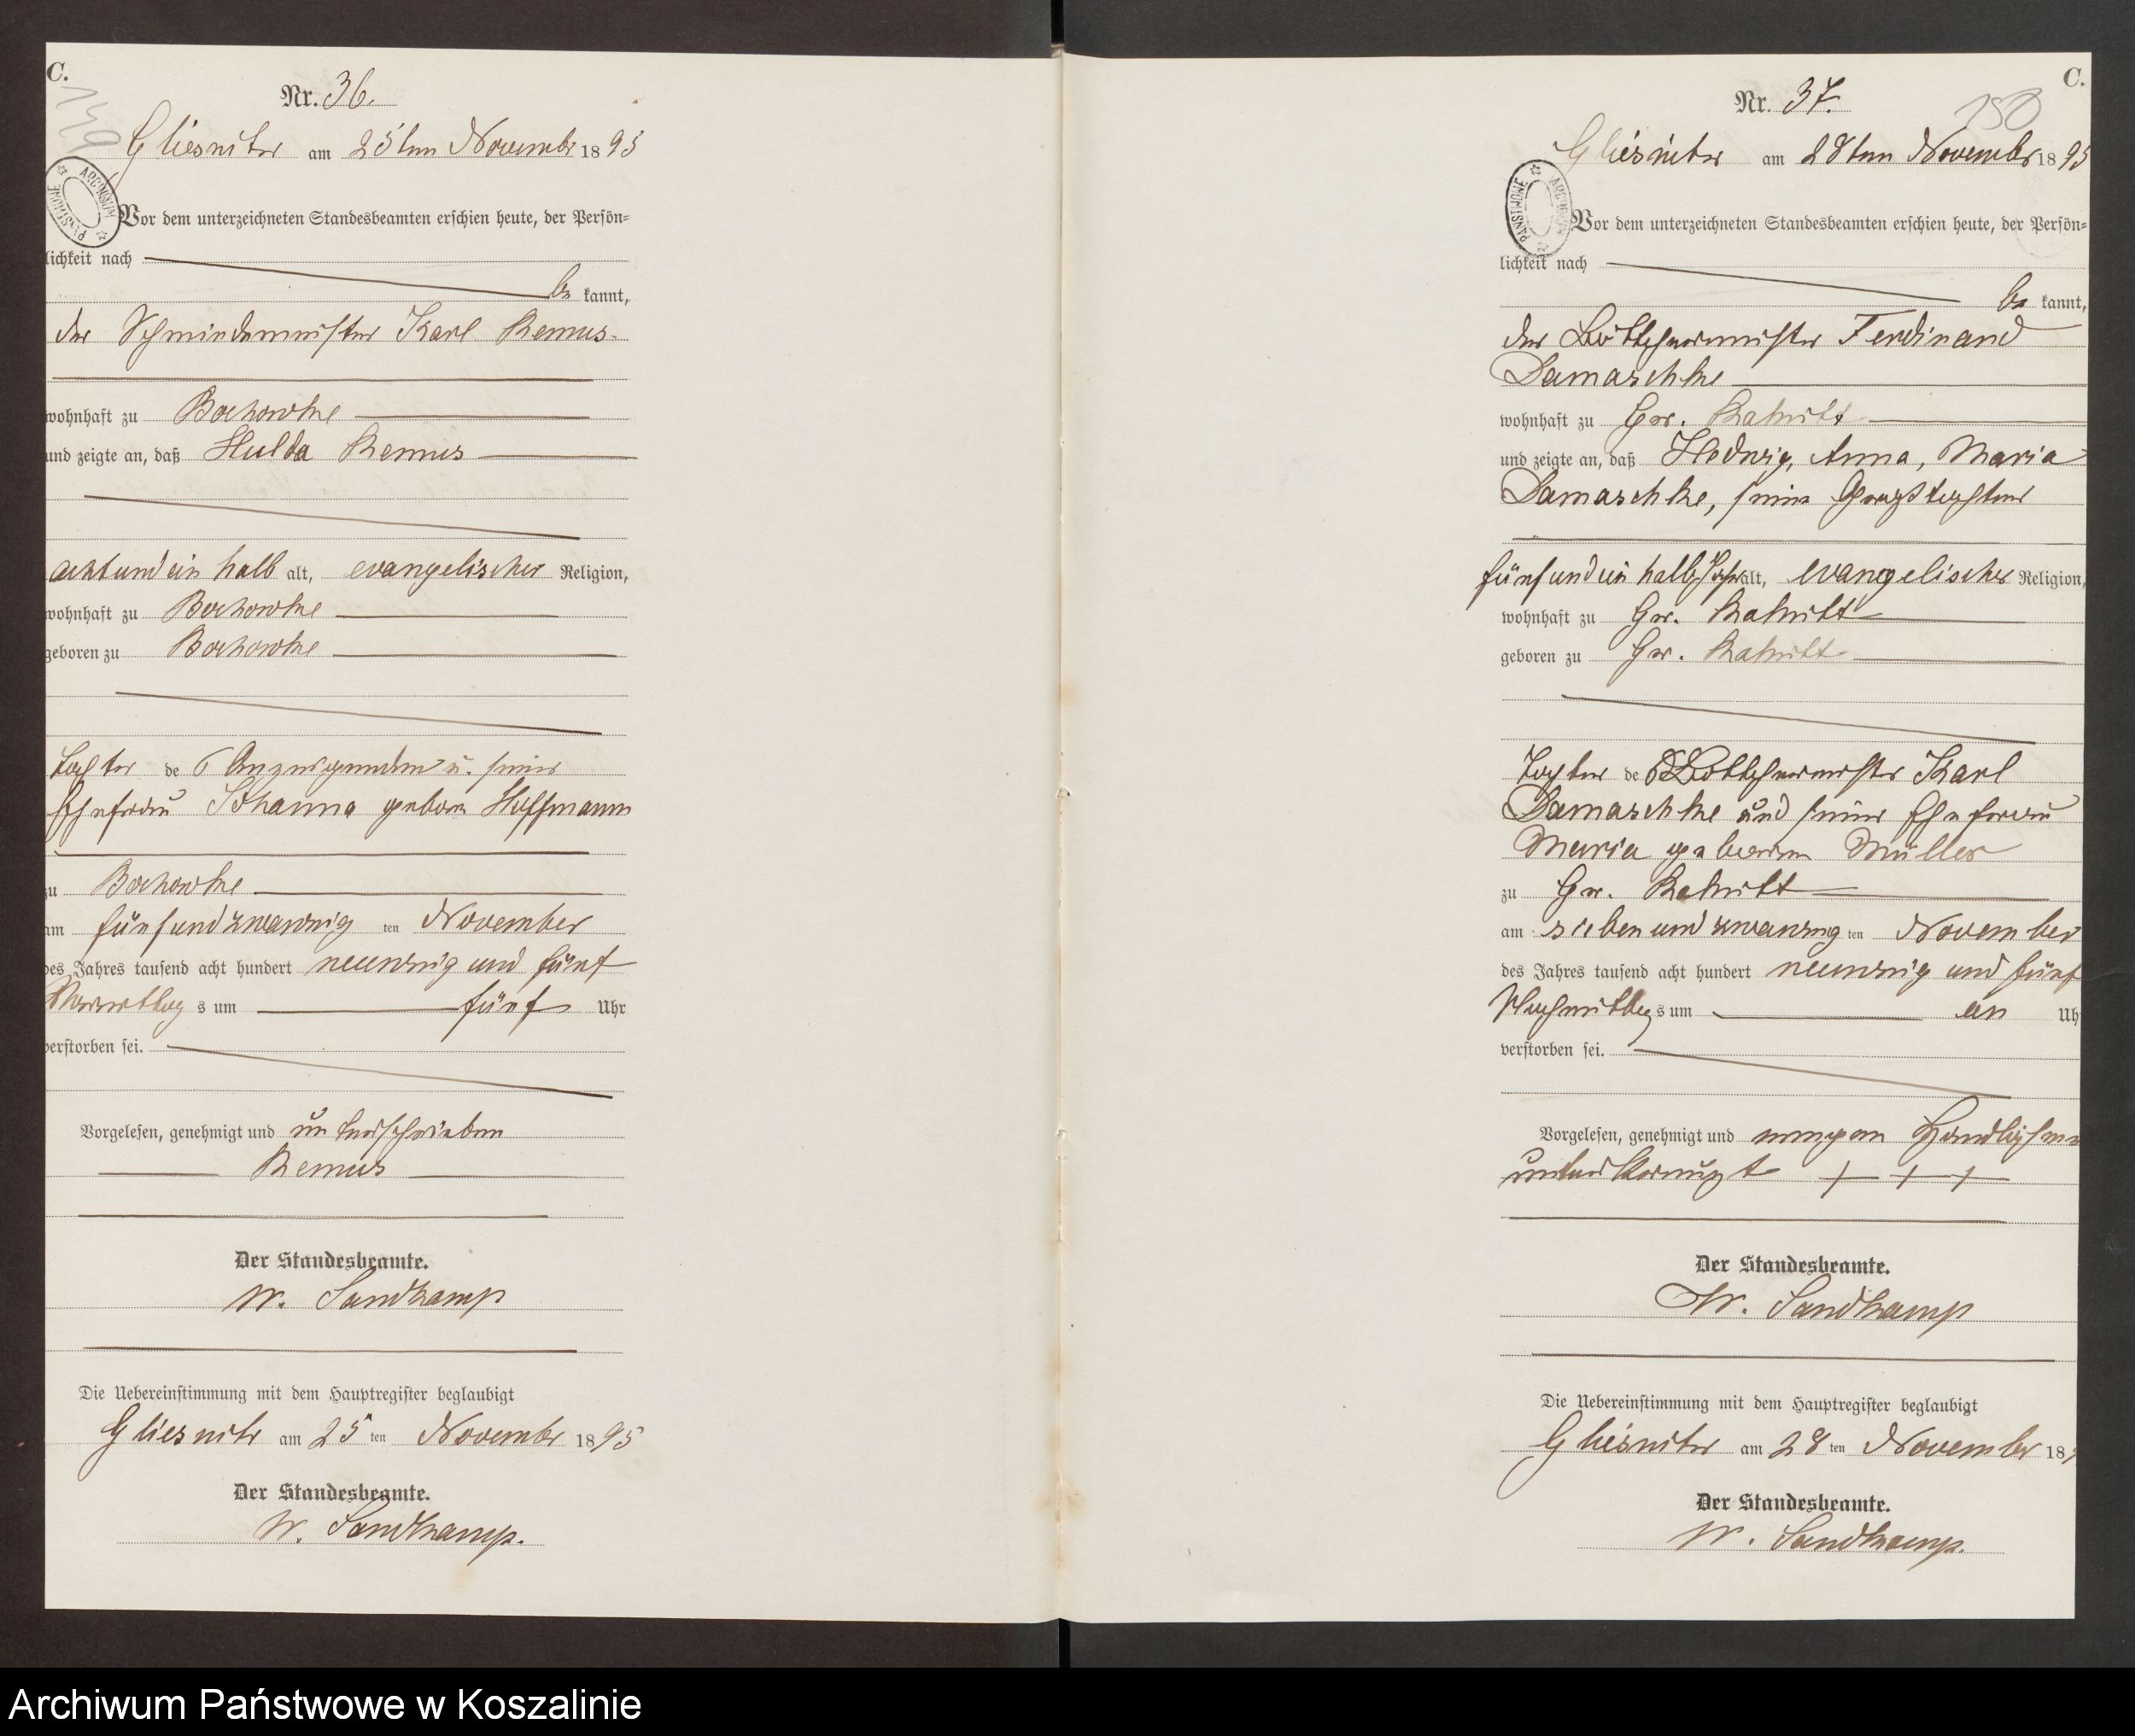 C.
149
Nr. 36.
Gliesnitz am 25ten November 1895
ARCHIWUM PAŃSTWOWE
Vor dem unterzeichneten Standesbeamten erschien heute, der Persön-
lichkeit nach
be kannt,
der Schmiedemeister Karl Remus
wohnhaft zu Bochowke
und zeigte an, daß Hulda Remus
acht und ein halb alt, evangelischer Religion,
wohnhaft zu Bochowke
geboren zu Bochowke
Tochter des Anzeigenden u. seiner
Ehefrau Johanna geboren Hoffmann
zu Bochowke
am fünfundzwanzig ten November
des Jahres tausend acht hundert neunzig und fünf
Vormittag s um fünf Uhr
verstorben sei.
Vorgelesen, genehmigt und unterschrieben
Remus
Der Standesbeamte.
W. Sandkamp
Die Uebereinstimmung mit dem Hauptregister beglaubigt
Gliesnitz am 25 ten November 1895
Der Standesbeamte.
W. Sandkamp.
C.
150
Nr. 37.
Gliesnitz am 28ten November 1895
ARCHIWUM PAŃSTWOWE
Vor dem unterzeichneten Standesbeamten erschien heute, der Persön-
lichkeit nach
be kannt,
der Böttchermeister Ferdinand
Damaschke
wohnhaft zu Gr. Rakitt
und zeigte an, daß Hedwig, Anna, Maria
Damaschke, seine Großtochter
fünf und ein halb Jahr alt, evangelischer Religion,
wohnhaft zu Gr. Rakitt
geboren zu Gr. Rakitt
Tochter des Böttchermeister Karl
Damaschke und seiner Ehefrau
Maria geborene Müller
zu Gr. Rakitt
am siebenundzwanzig ten November
des Jahres tausend acht hundert neunzig und fünf
Nachmittag s um ein Uh
verstorben sei.
Vorgelesen, genehmigt und wegen
unterkreuzt + + +
Der Standesbeamte.
W. Sandkamp
Die Uebereinstimmung mit dem Hauptregister beglaubigt
Gliesnitz am 28 ten November 18
Der Standesbeamte.
W. Sandkamp.
Archiwum Państwowe w Koszalinie